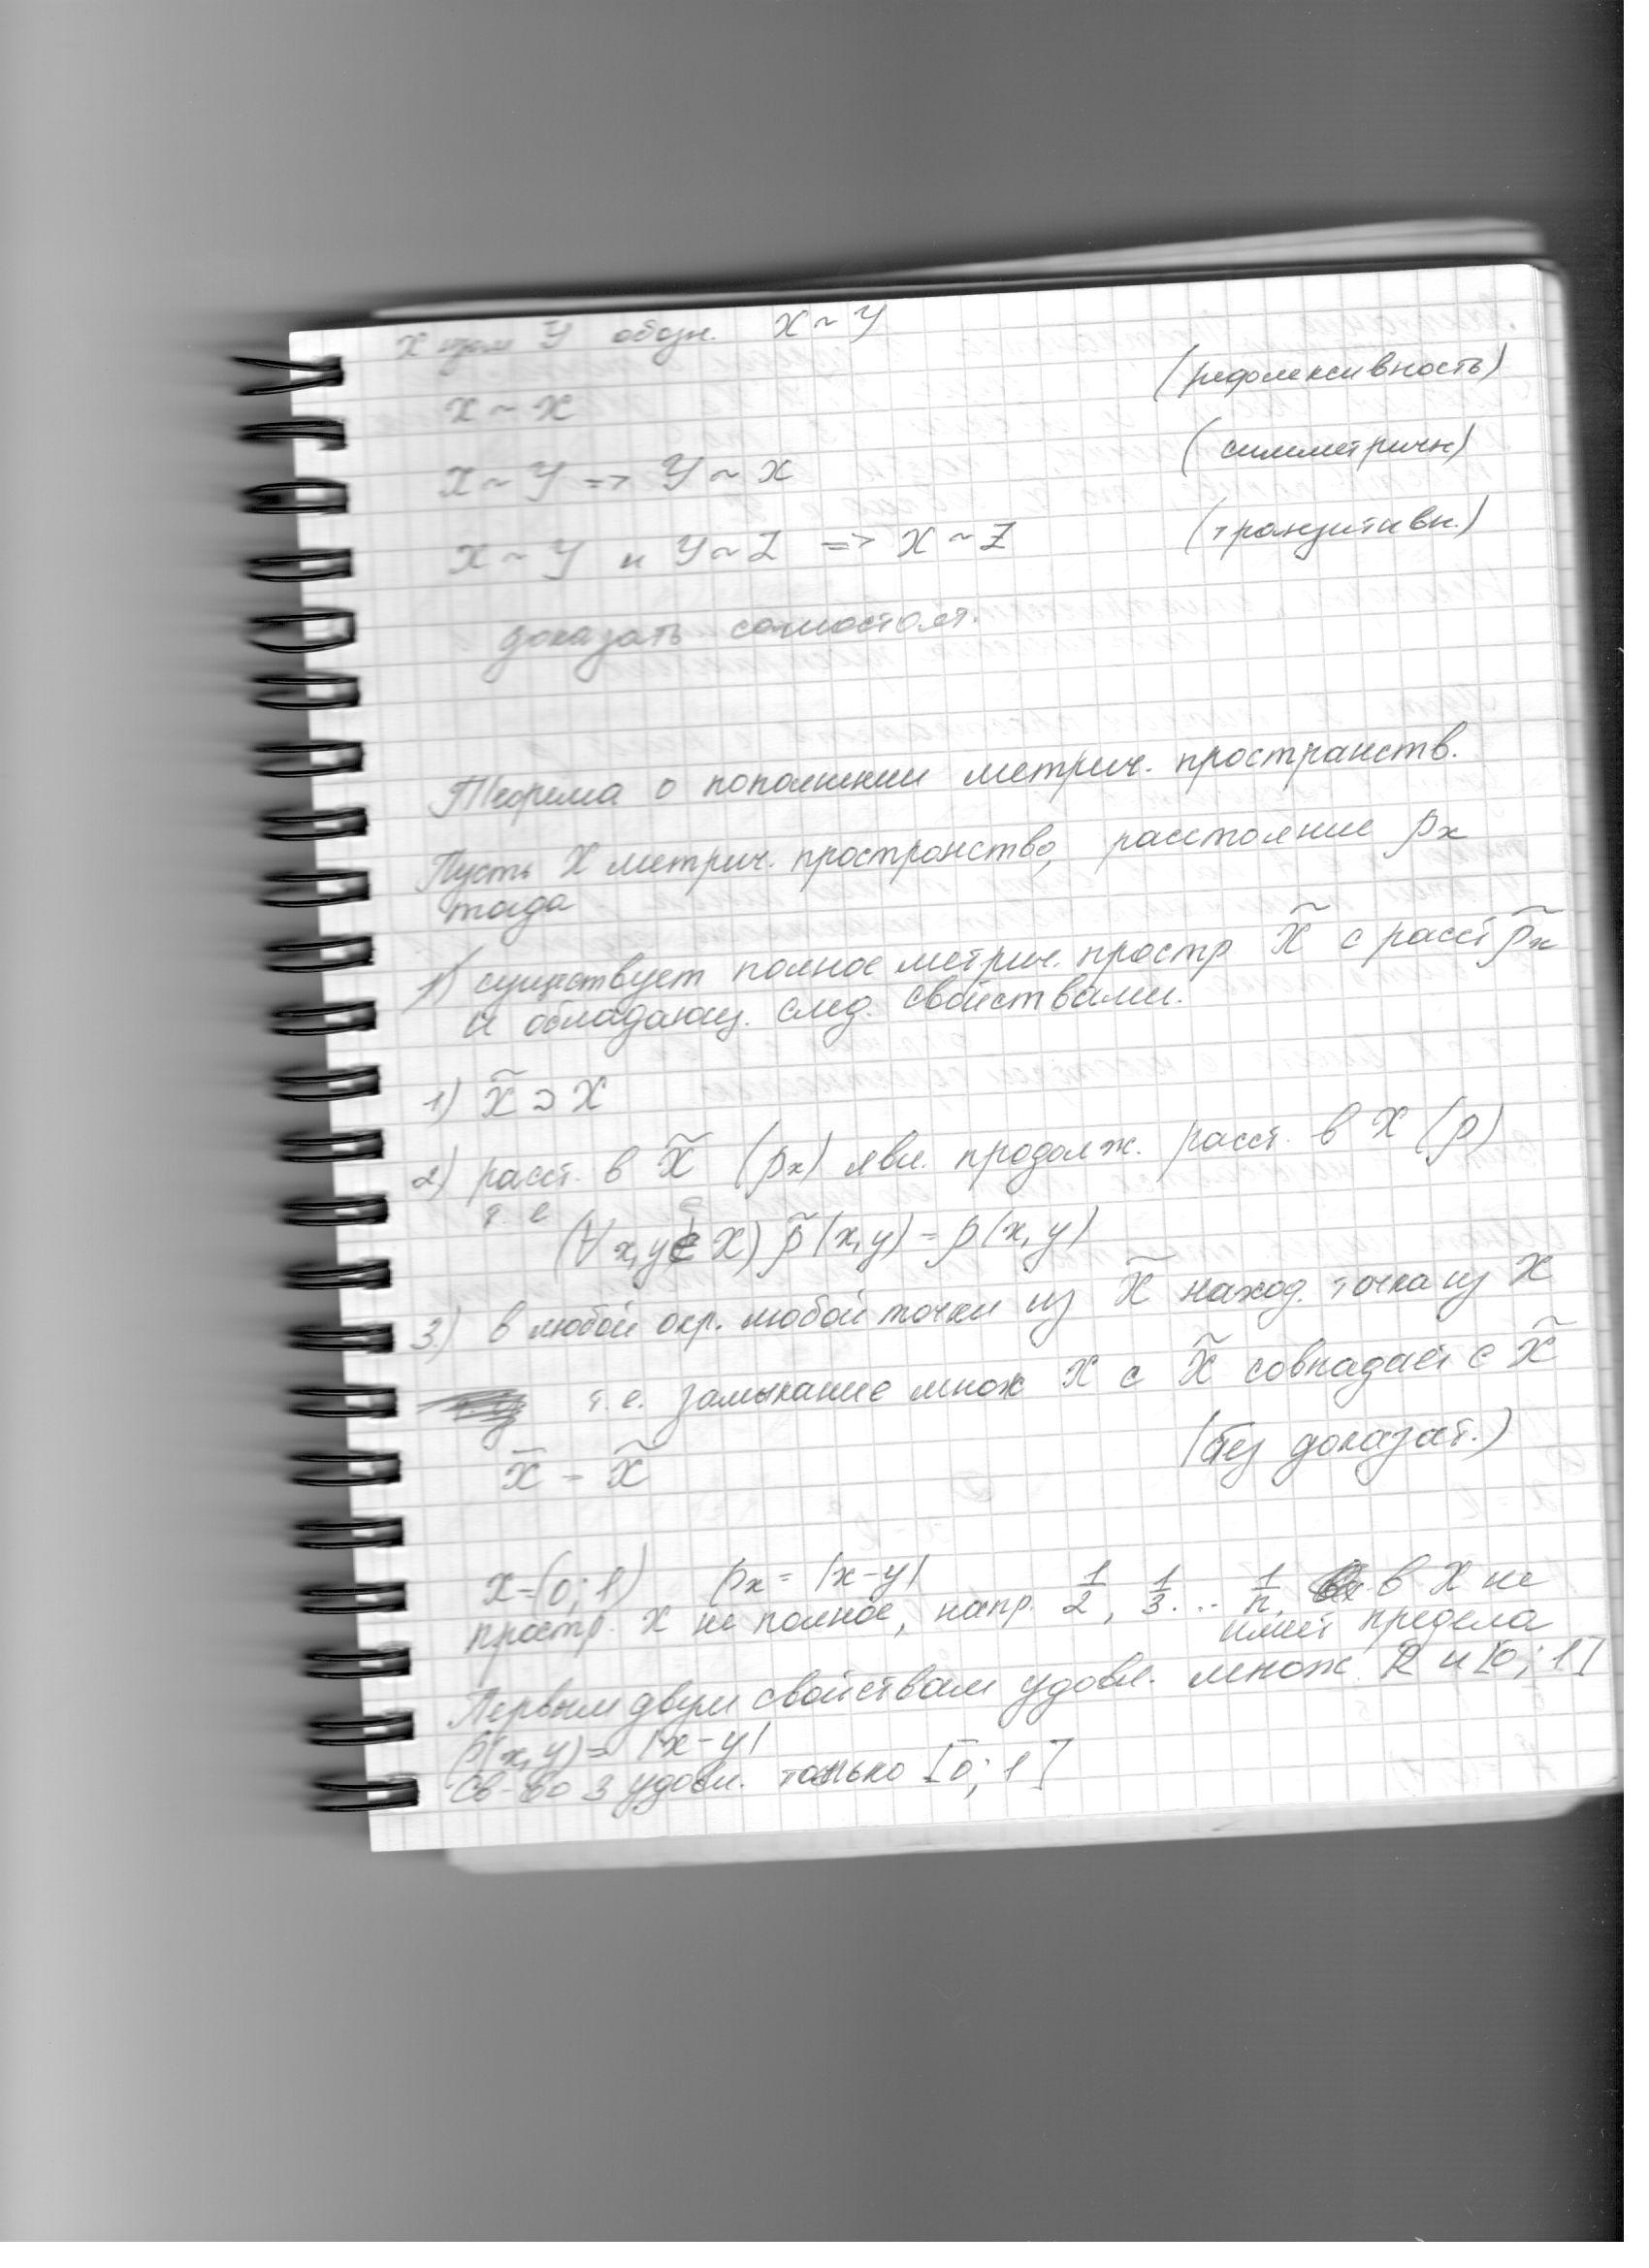 X изом Y обозн. X ~ Y
X ~ X (рефлексивность)
X ~ Y => Y ~ X (симметричн)
X ~ Y и Y ~ Z => X ~ Z (транзитивн.)
доказать самостоят.
Теорема о пополнении метрич. пространств.
Пусть X метрич. пространство, расстояние ρx
тогда
1) существует полное метрич. простр. X̃ с расст ρ̃x
и обладающ. след. свойствами.
1) X̃ ⊃ X
2) расст. в X̃ (ρx) явл. продолж. расст. в X (ρ)
т. е
(∀ x, y ∈ X) ρ̃(x, y) = ρ(x, y)
3.) в любой окр. любой точки из X̃ наход. точка из X
т. е. замыкание множ X с X̃ совпадает с X̃
X̄ = X̃ (без доказат.)
X = (0; 1) ρx = |x - y|
простр. X не полное, напр. 1/2, 1/3 ... 1/n. в X не
имеет предела
Первым двум свойствам удовл. множ. R и [0; 1]
ρ(x, y) = |x - y|
св-во 3 удовл. только [0; 1]